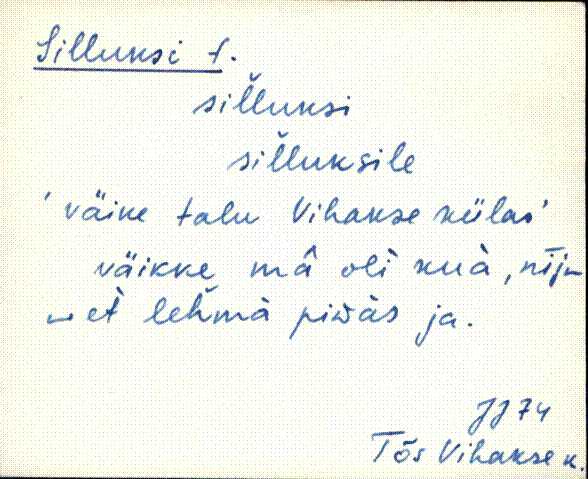 Silluksi t.
sil̆luksi
sil̆luksile
'väike talu Vihakse külas'
väikke mâ oĺi kuà, nīju
et̀ lehmà piđàs ja.
JJ 74
Tõs Vihakse k.